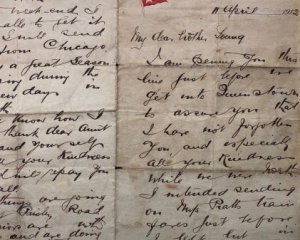 week-end. I
to get it
I will send
from Chicago
a great season
during the
days on
know how I
thank dear Aunt
and yourself
your Kindness
will repay you
all.
things are going
Paisley Road
are with
and are doing
11 April 1912
My dear brother Young
I am penning you this
line just before we
get into Queenstown
to assure you that
I have not forgotten
you and especially
all your Kindness
while we were North
I intended sending
on Mrs Pratts train
fares just before
but in